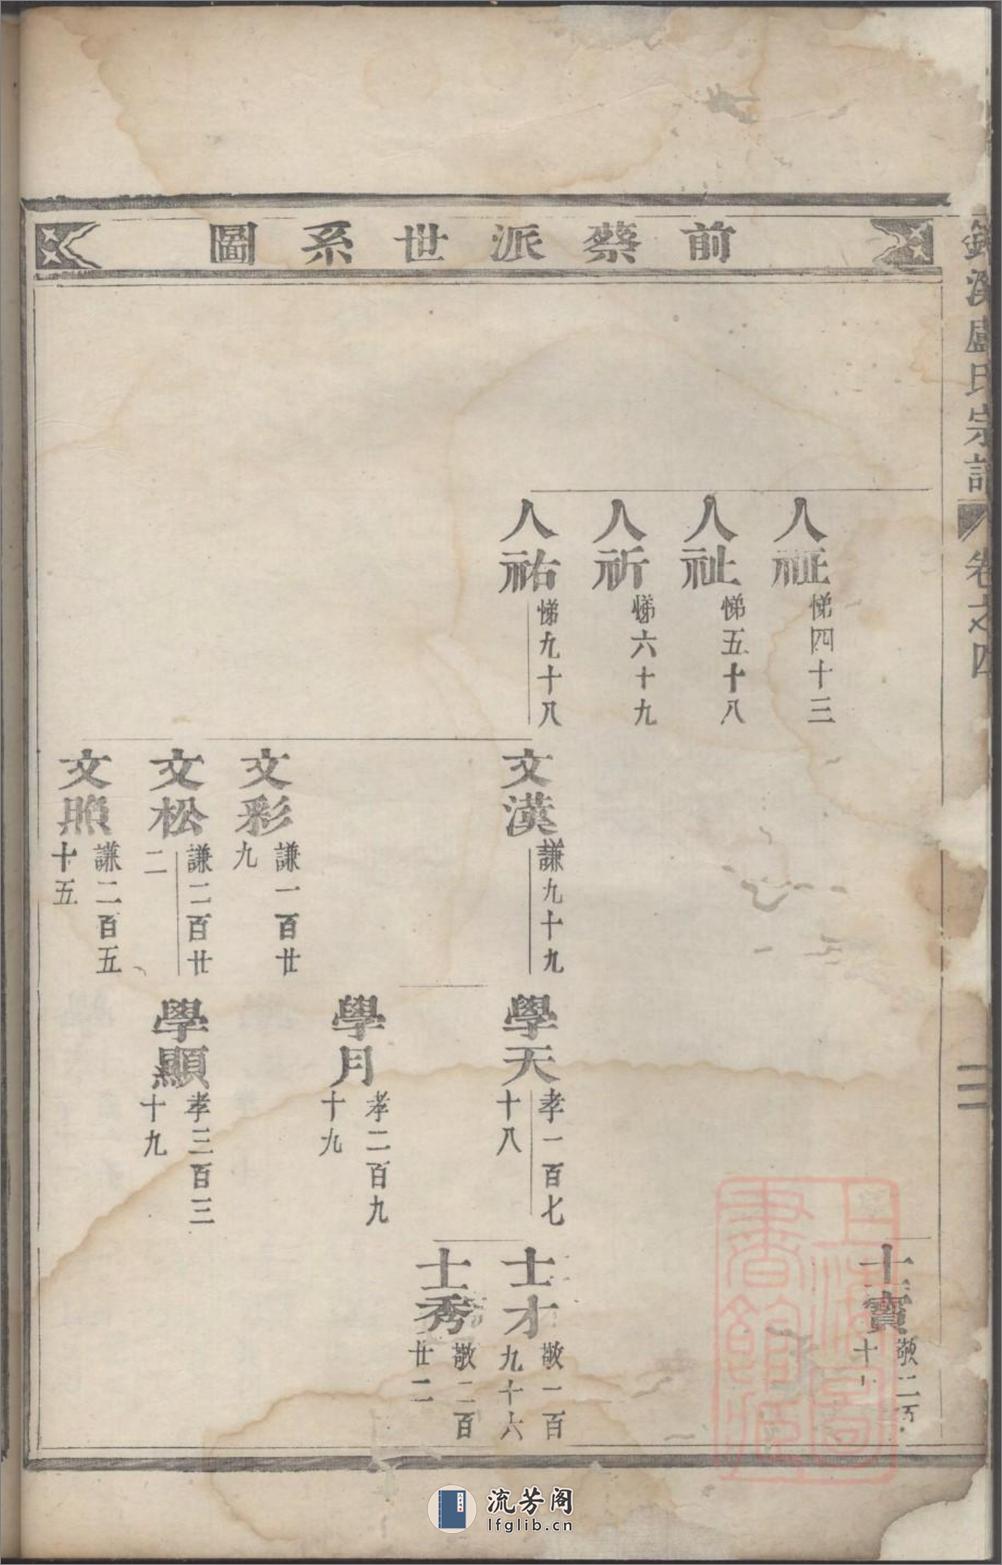 前蔡派世系圖
盧氏宗譜
卷之四
人祉
悌五十八
人祈
悌六十九
人祐
悌九十八
悌四十三
文漢
謙九十九
文彩
謙一百廿
九
文松
謙二百廿
二
文照
謙二百五
十五
學天
孝一百七
十八
學月
孝二百九
十九
學顯
孝三百三
十九
士寶
敬二百
士才
敬一百
九十六
士秀
敬二百
廿二
上海圖書館藏
流芳阁
lfglib.cn